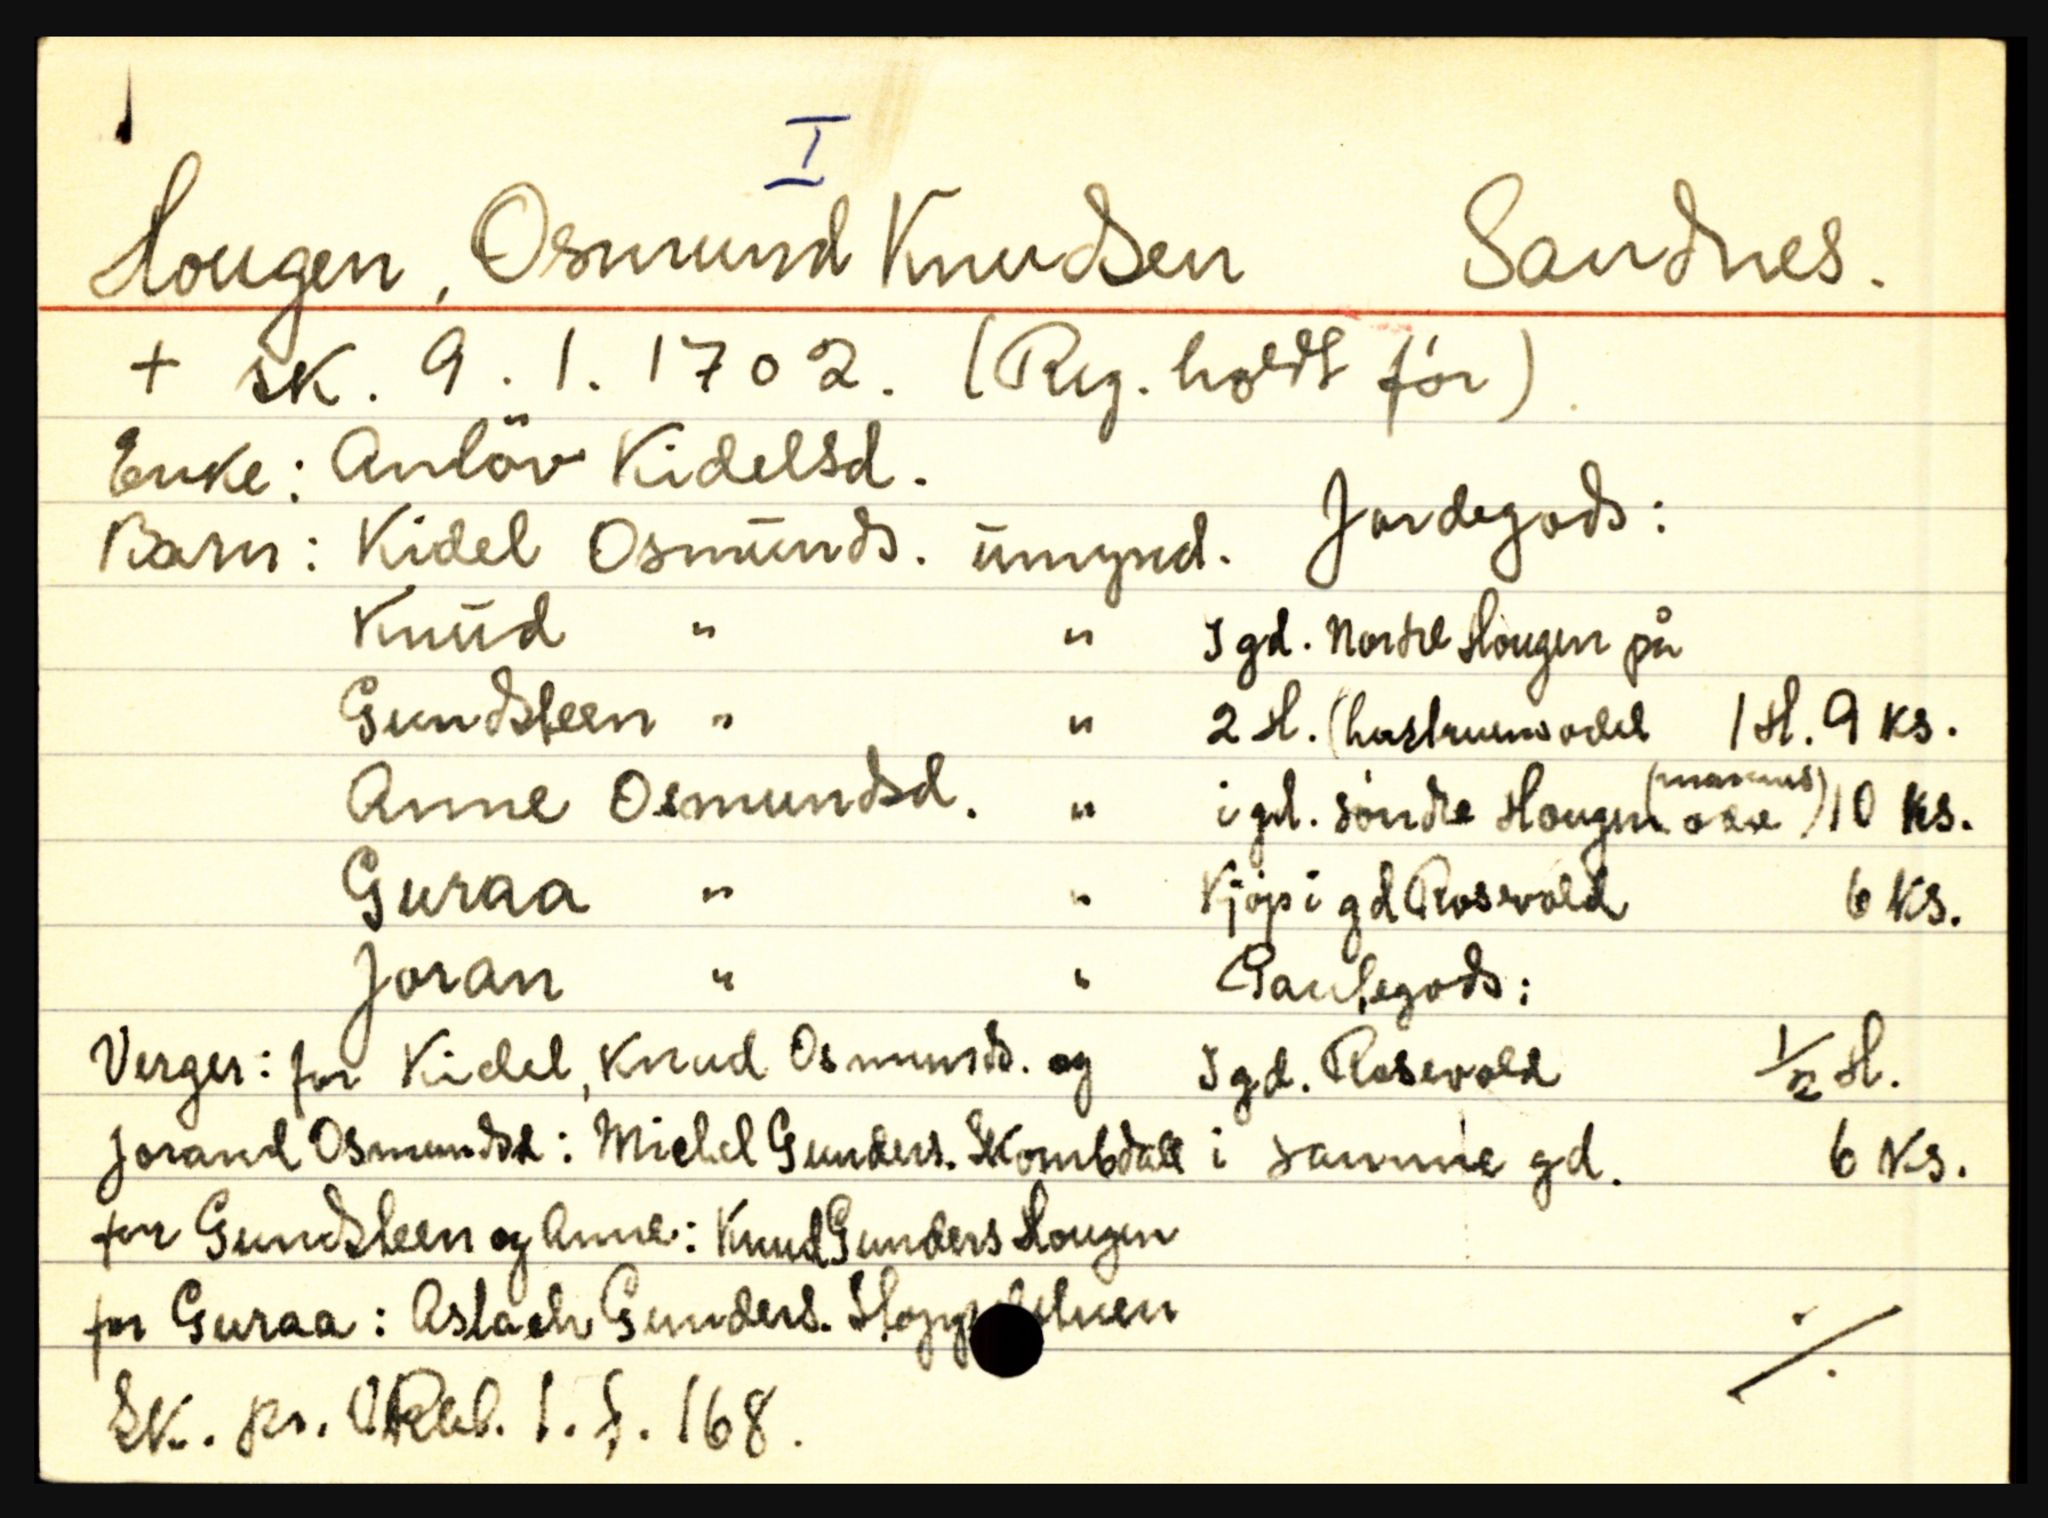 I
Hougen, Osmund Knudsen Sandnes.
+ sk. 9. 1. 1702. (Reg. holdt før)
Enke: Anlöv Kidelsd.
Jordegods:
Barn: Kidel Osmunds. umynd.
Knud " " I gd. Nordre Hougen på
Gundsteen " " 2 H. (hustruens odel 1 H. 9 ks.
Anne Osmundsd. " i gd. søndre Hougen (mannens) 10 Ks.
Guraa " " Kjøp i gd Rosevold 6 Ks.
Joran " " Pantegods:
Verger: for Kidel, Knud Osmunds. og I gd. Rosevold 1/2 H.
Jorand Osmundsd: Michel Gunders. Skombdall i samme gd. 6 Ks.
for Gundsteen og Anne: Knud Gunders Hougen
for Guraa: Aslach Gunders.
Sk. pr. 1. f. 168.